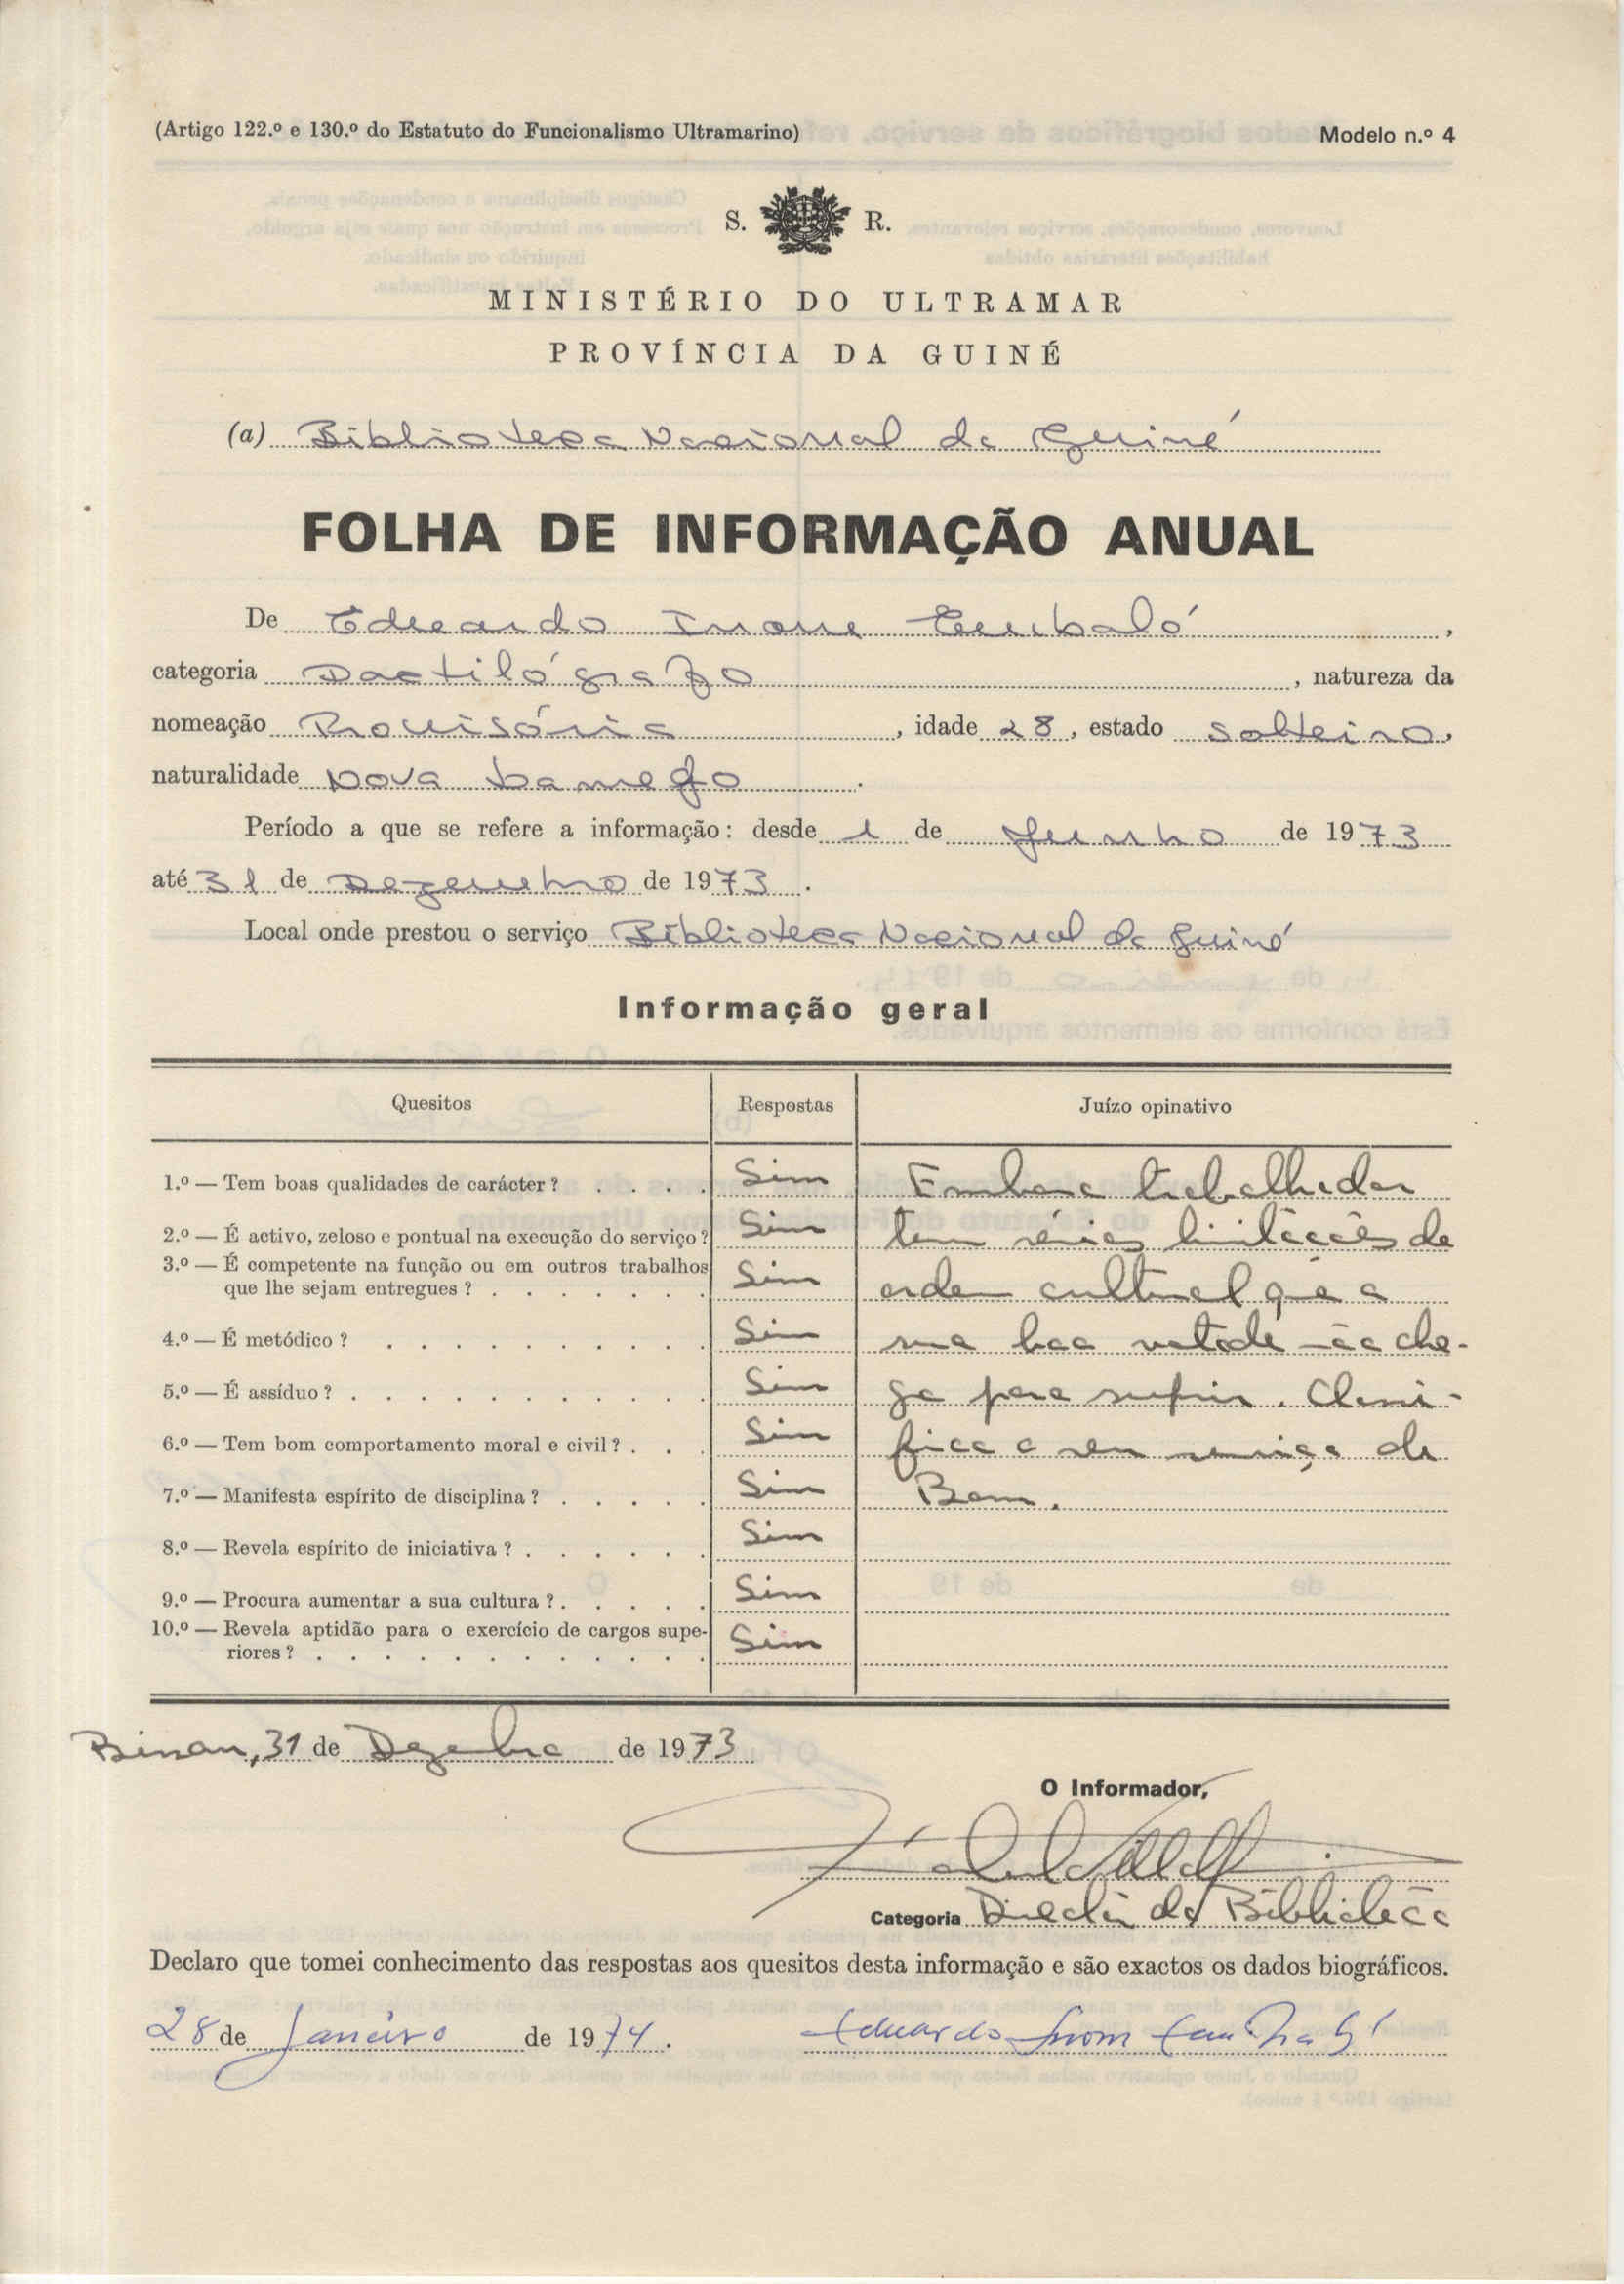 (Artigo 122.º e 130.º do Estatuto do Funcionalismo Ultramarino) Modelo n.º 4
S. R.
MINISTÉRIO DO ULTRAMAR
PROVÍNCIA DA GUINÉ
(a) Biblioteca Nacional da Guiné
FOLHA DE INFORMAÇÃO ANUAL
De Eduardo Embaló,
categoria Dactilógrafo, natureza da
nomeação Provisória, idade 28, estado solteiro,
naturalidade Nova Lamego.
Período a que se refere a informação: desde 1 de Junho de 1973
até 31 de Dezembro de 1973.
Local onde prestou o serviço Biblioteca Nacional da Guiné
Informação geral
Quesitos Respostas Juízo opinativo
1.º — Tem boas qualidades de carácter? . . . . Sim Embora trabalhador
2.º — É activo, zeloso e pontual na execução do serviço? Sim tem sérias limitações de
3.º — É competente na função ou em outros trabalhos
que lhe sejam entregues? . . . . . . . Sim ordem cultural que a
4.º — É metódico? . . . . . . . . . . Sim sua boa vontade não che-
5.º — É assíduo? . . . . . . . . . . . Sim ga para suprir. Classi-
6.º — Tem bom comportamento moral e civil? . . . Sim fico o seu serviço de
7.º — Manifesta espírito de disciplina? . . . . . Sim Bom.
8.º — Revela espírito de iniciativa? . . . . . . Sim
9.º — Procura aumentar a sua cultura? . . . . . Sim
10.º — Revela aptidão para o exercício de cargos supe-
riores? . . . . . . . . . . . . Sim
Bissau, 31 de Dezembro de 1973
O Informador,
Categoria Director da Biblioteca
Declaro que tomei conhecimento das respostas aos quesitos desta informação e são exactos os dados biográficos.
28 de Janeiro de 1974. Eduardo